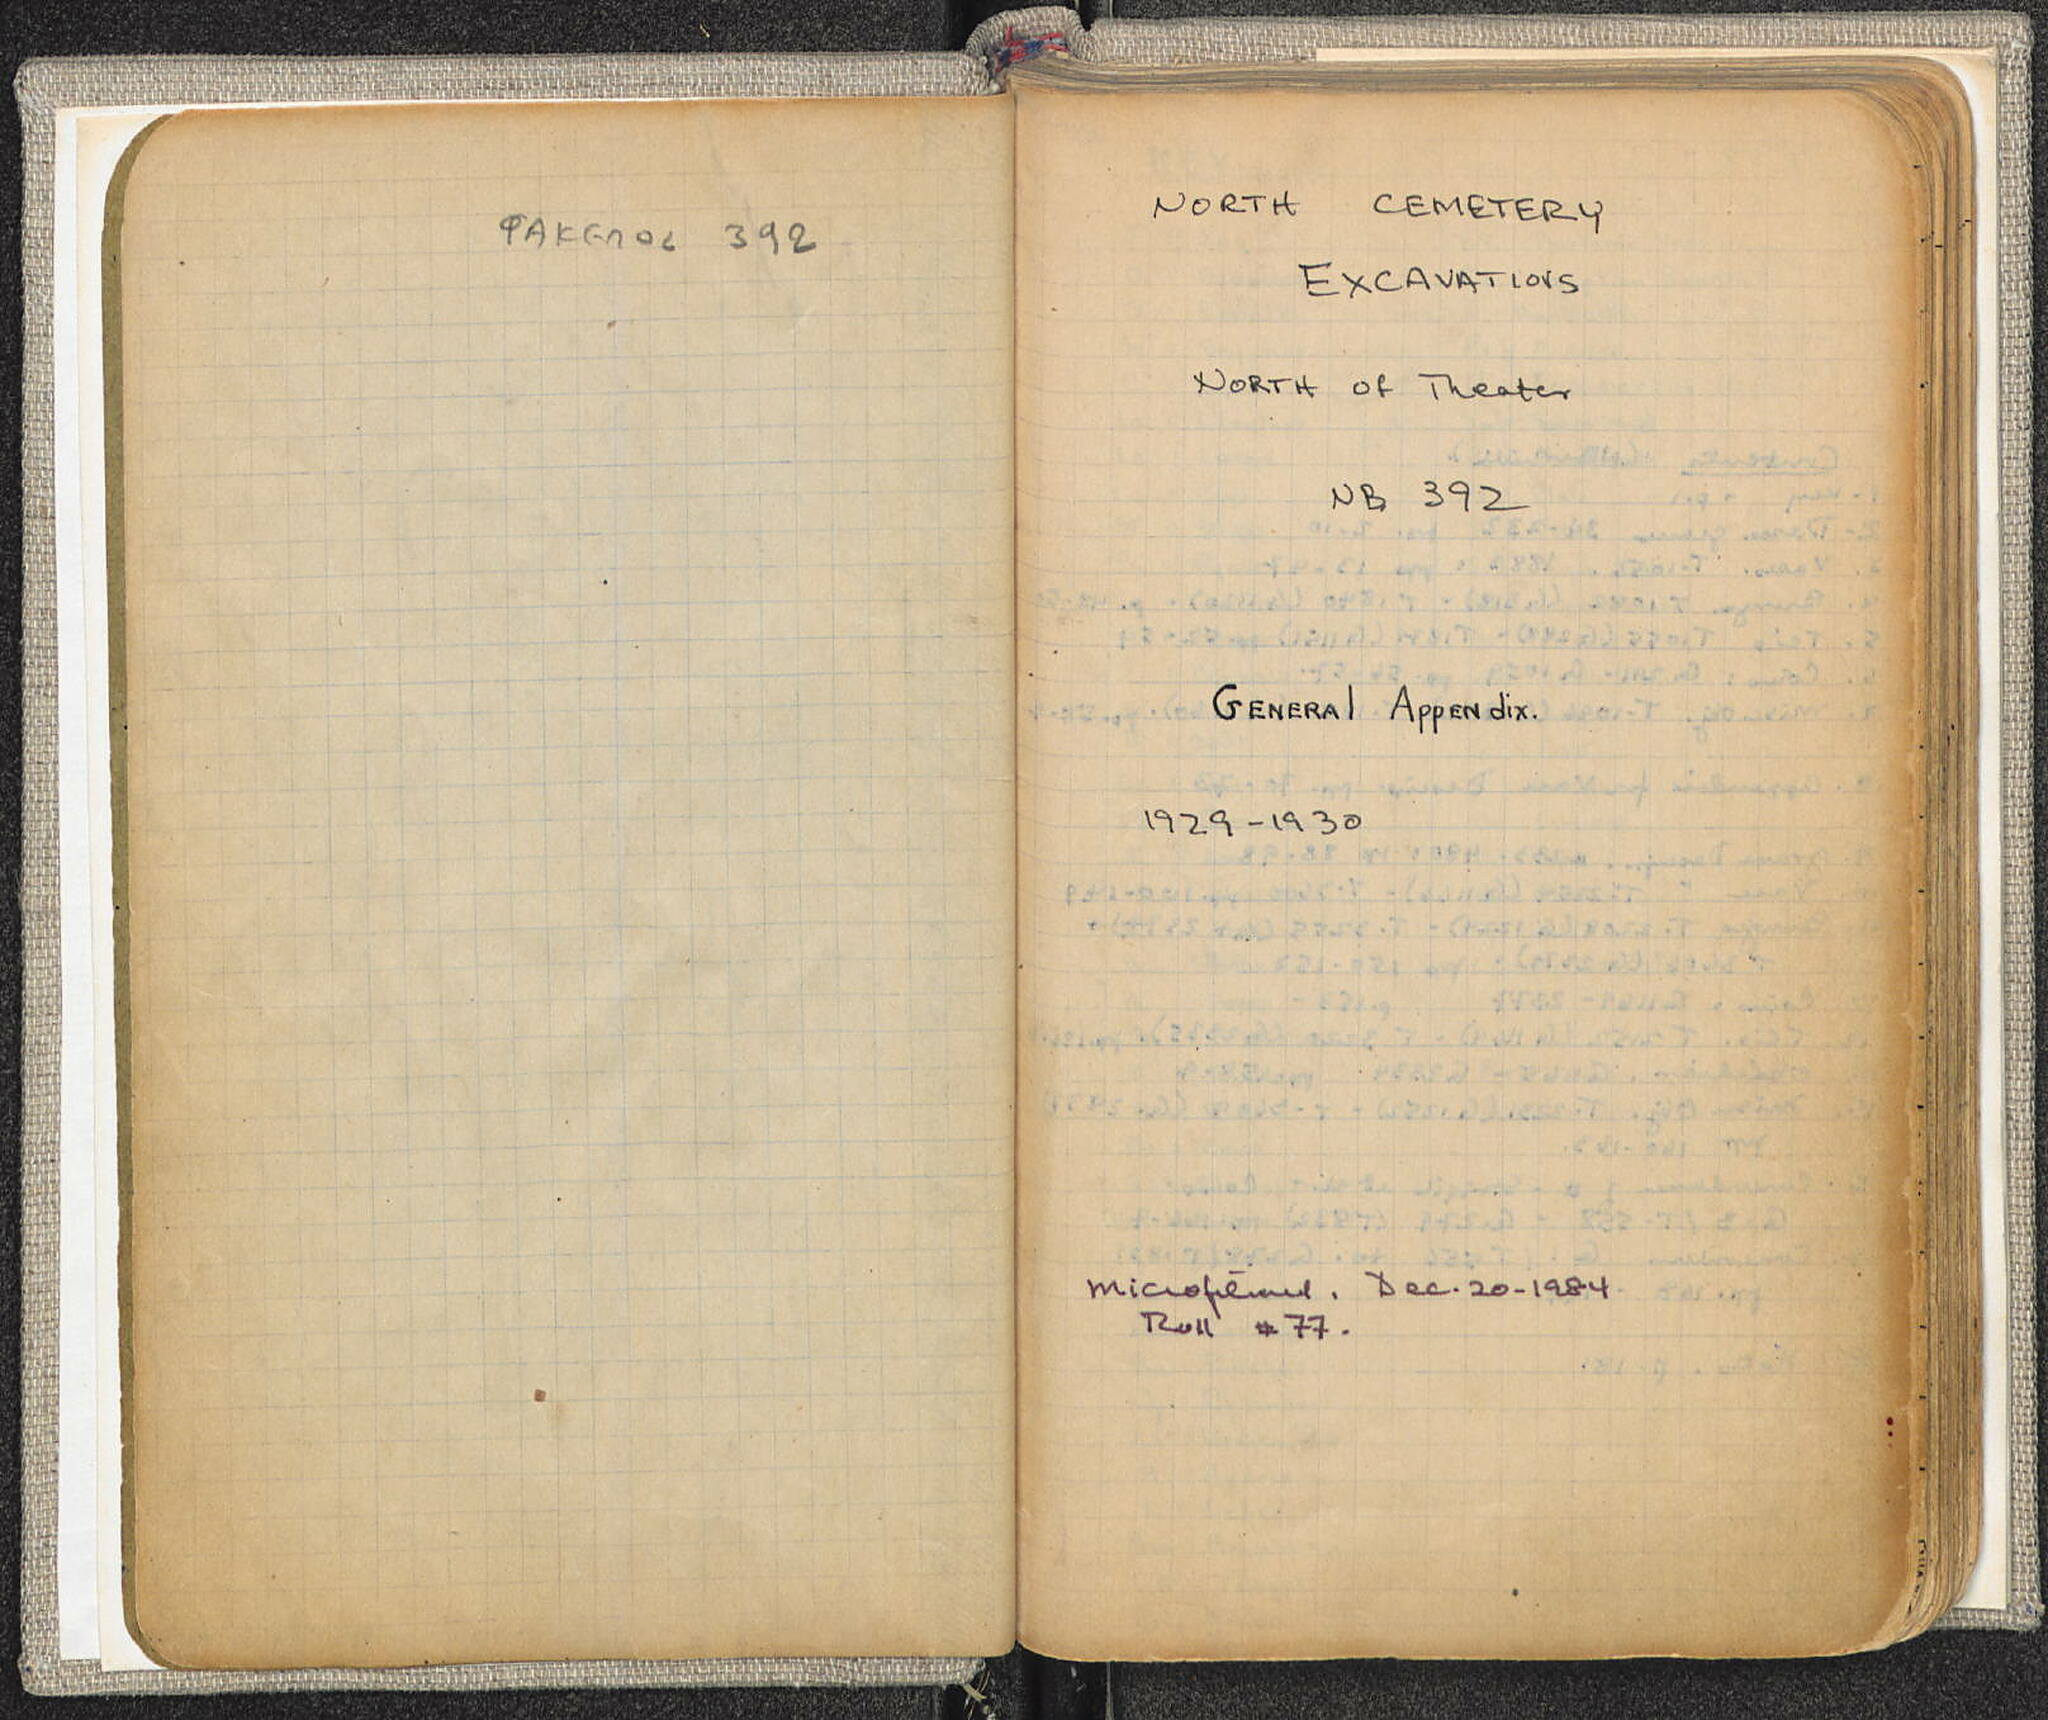 ΦΑΚΕΛΟΣ 392
NORTH CEMETERY
EXCAVATIONS
NORTH Of Theater
NB 392
GENERAl AppENdix.
1929-1930
Microfilmed. Dec. 20-1984
Roll #77.